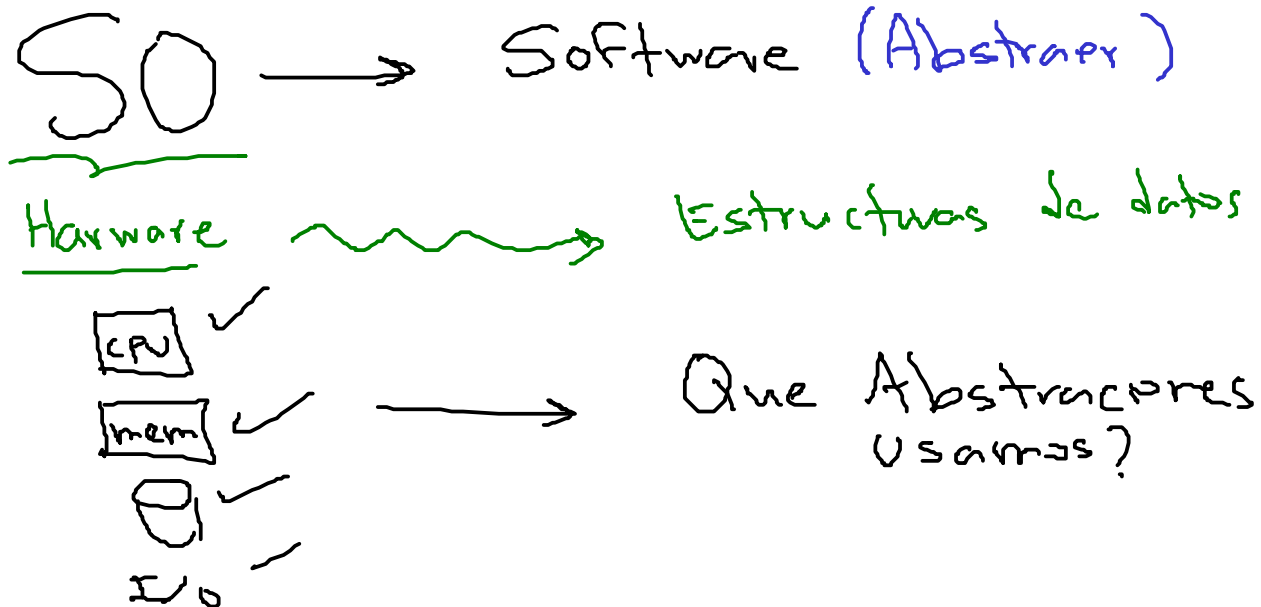 SO → Software (Abstraer)
Harware → Estructuras de datos
CPU
mem → Que Abstracciones
usamos?
I/O